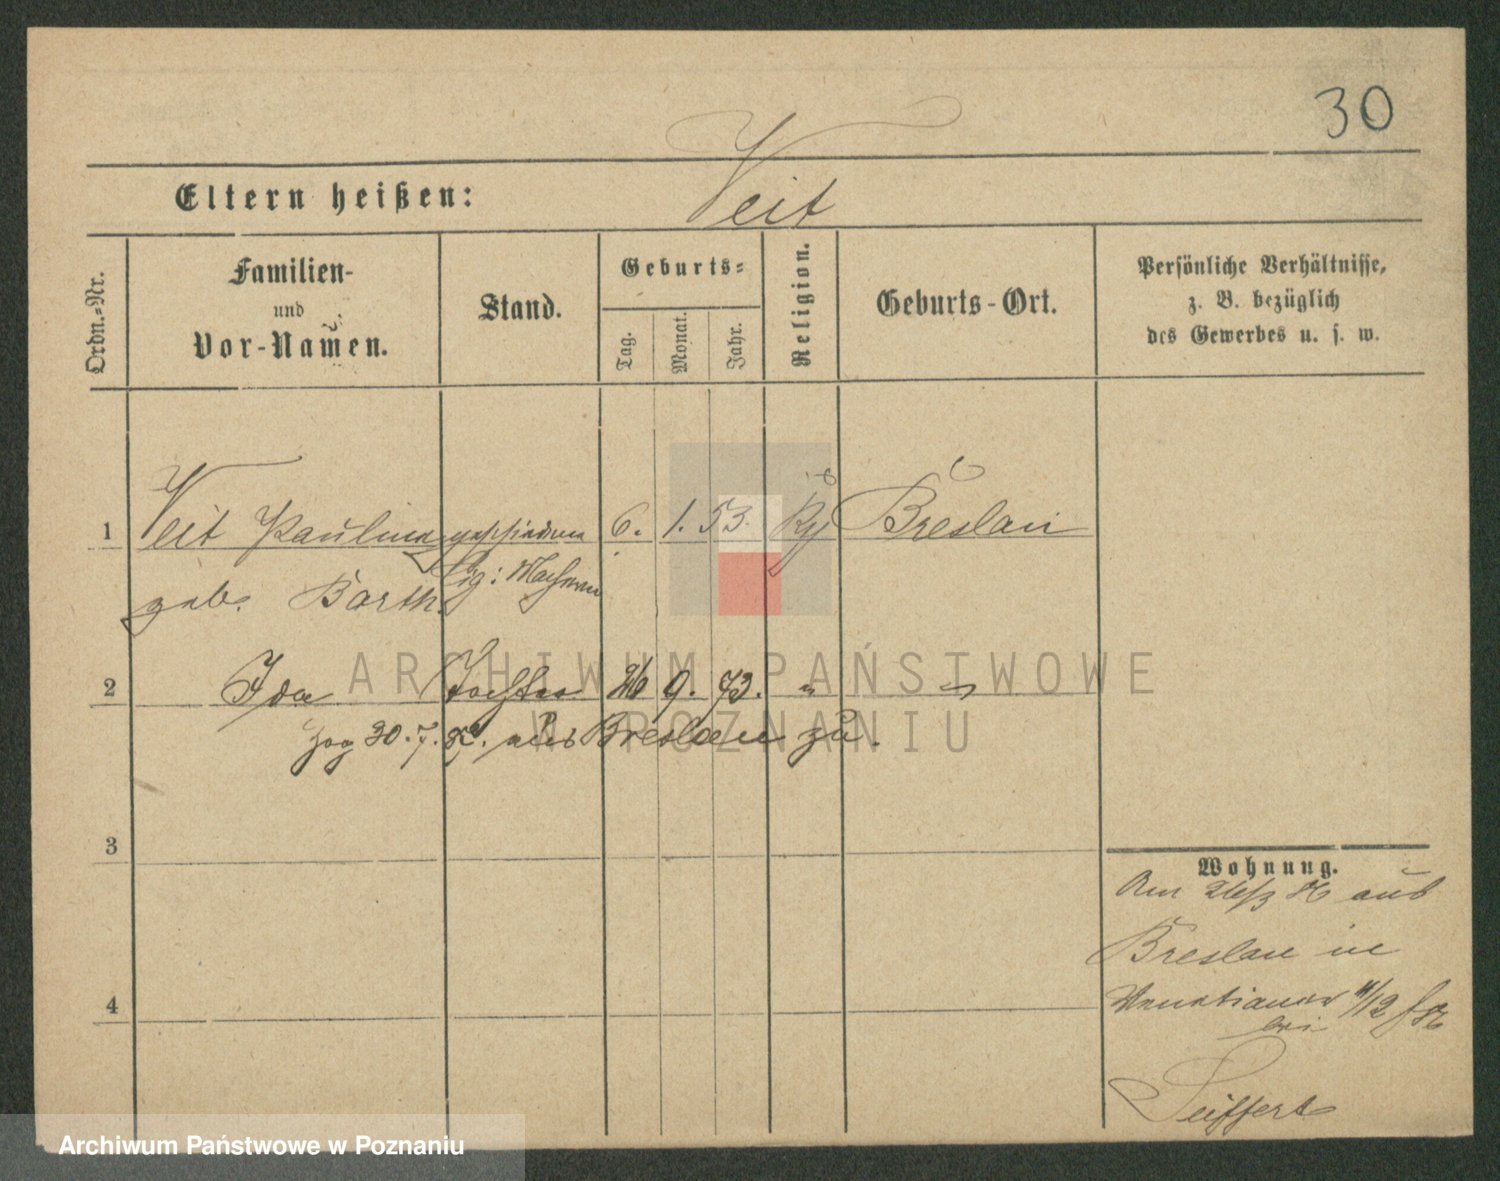 30
Veit
Eltern heißen:
Ordn.-Nr.
Familien-
und
Vor-Namen.
Stand.
Geburts-
Tag.
Monat.
Jahr.
Religion.
Geburts-Ort.
Persönliche Verhältnisse,
z. B. bezüglich
des Gewerbes u. s. w.
1 Veit Paulina geschiedene 6. 1. 53. Breslau
geb. Barth.
2 Ida Tochter 26 9. 73. " "
zog 30.7. aus Breslau zu.
3
4
Wohnung.
Am 26/3 86 aus
Breslau in
Venetianer 11/12
bei
Seiffert
ARCHIWUM PAŃSTWOWE
W POZNANIU
Archiwum Państwowe w Poznaniu